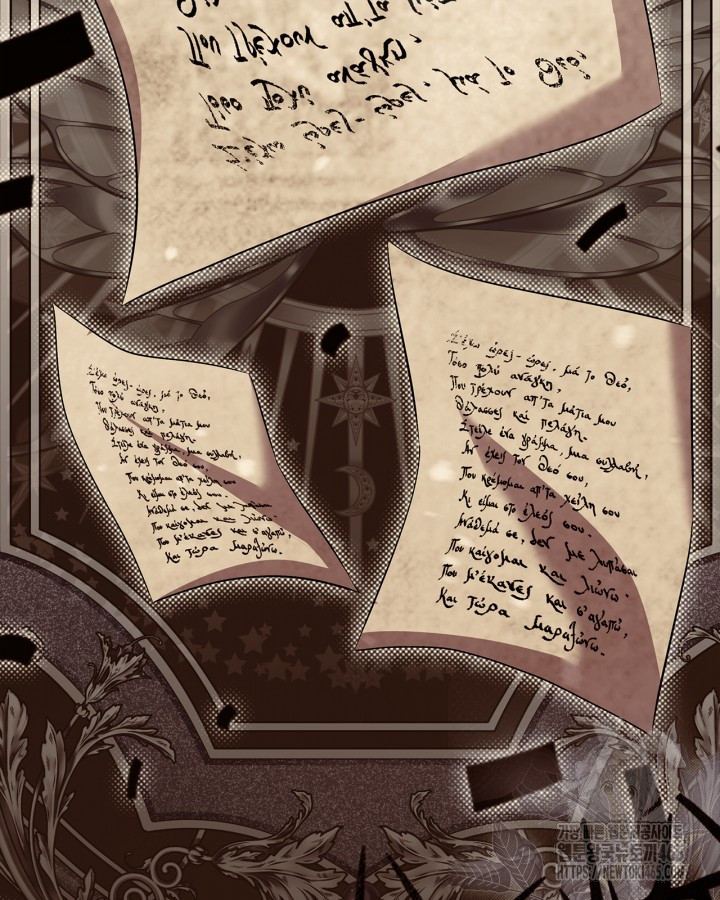 Που τρέχουν απ'τα
Τόσο πολύ ανάγκη,
Σ'έχω ώρες - ώρες, μά το Θεό,
Σ'έχω ώρες - ώρες, μά το Θεό,
Τόσο πολύ ανάγκη,
Που τρέχουν απ'τα μάτια μου
Θάλασσες και πελάγη.
Στείλε ένα γράμμα, μια συλλαβή,
Αν έχεις τον Θεό σου,
Που κρέμομαι απ'τα χείλη σου
Κι είμαι στο έλεός σου.
Ανάθεμά σε, δεν με λυπάσαι
Που καίγομαι και λιώνω
Που μ'έκανες και σ'αγαπώ,
Και τώρα μαραζώνω.
Σ'έχω ώρες - ώρες, μά το Θεό,
Τόσο πολύ ανάγκη,
Που τρέχουν απ'τα μάτια μου
Θάλασσες και πελάγη.
Στείλε ένα γράμμα, μια συλλαβή,
Αν έχεις τον Θεό σου,
Που κρέμομαι απ'τα χείλη σου
Κι είμαι στο έλεός σου.
Ανάθεμά σε, δεν με λυπάσαι
Που καίγομαι και λιώνω.
Που μ'έκανες και σ'αγαπώ,
Και τώρα μαραζώνω.
가장 빠른 웹툰 제공사이트
웹툰왕국뉴토끼465
HTTPS://NEWTOKI465.COM